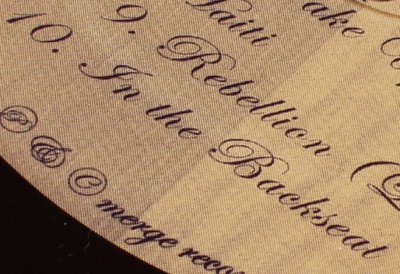 Haiti
9. Rebellion (
10. In the Backseat
℗ & © merge